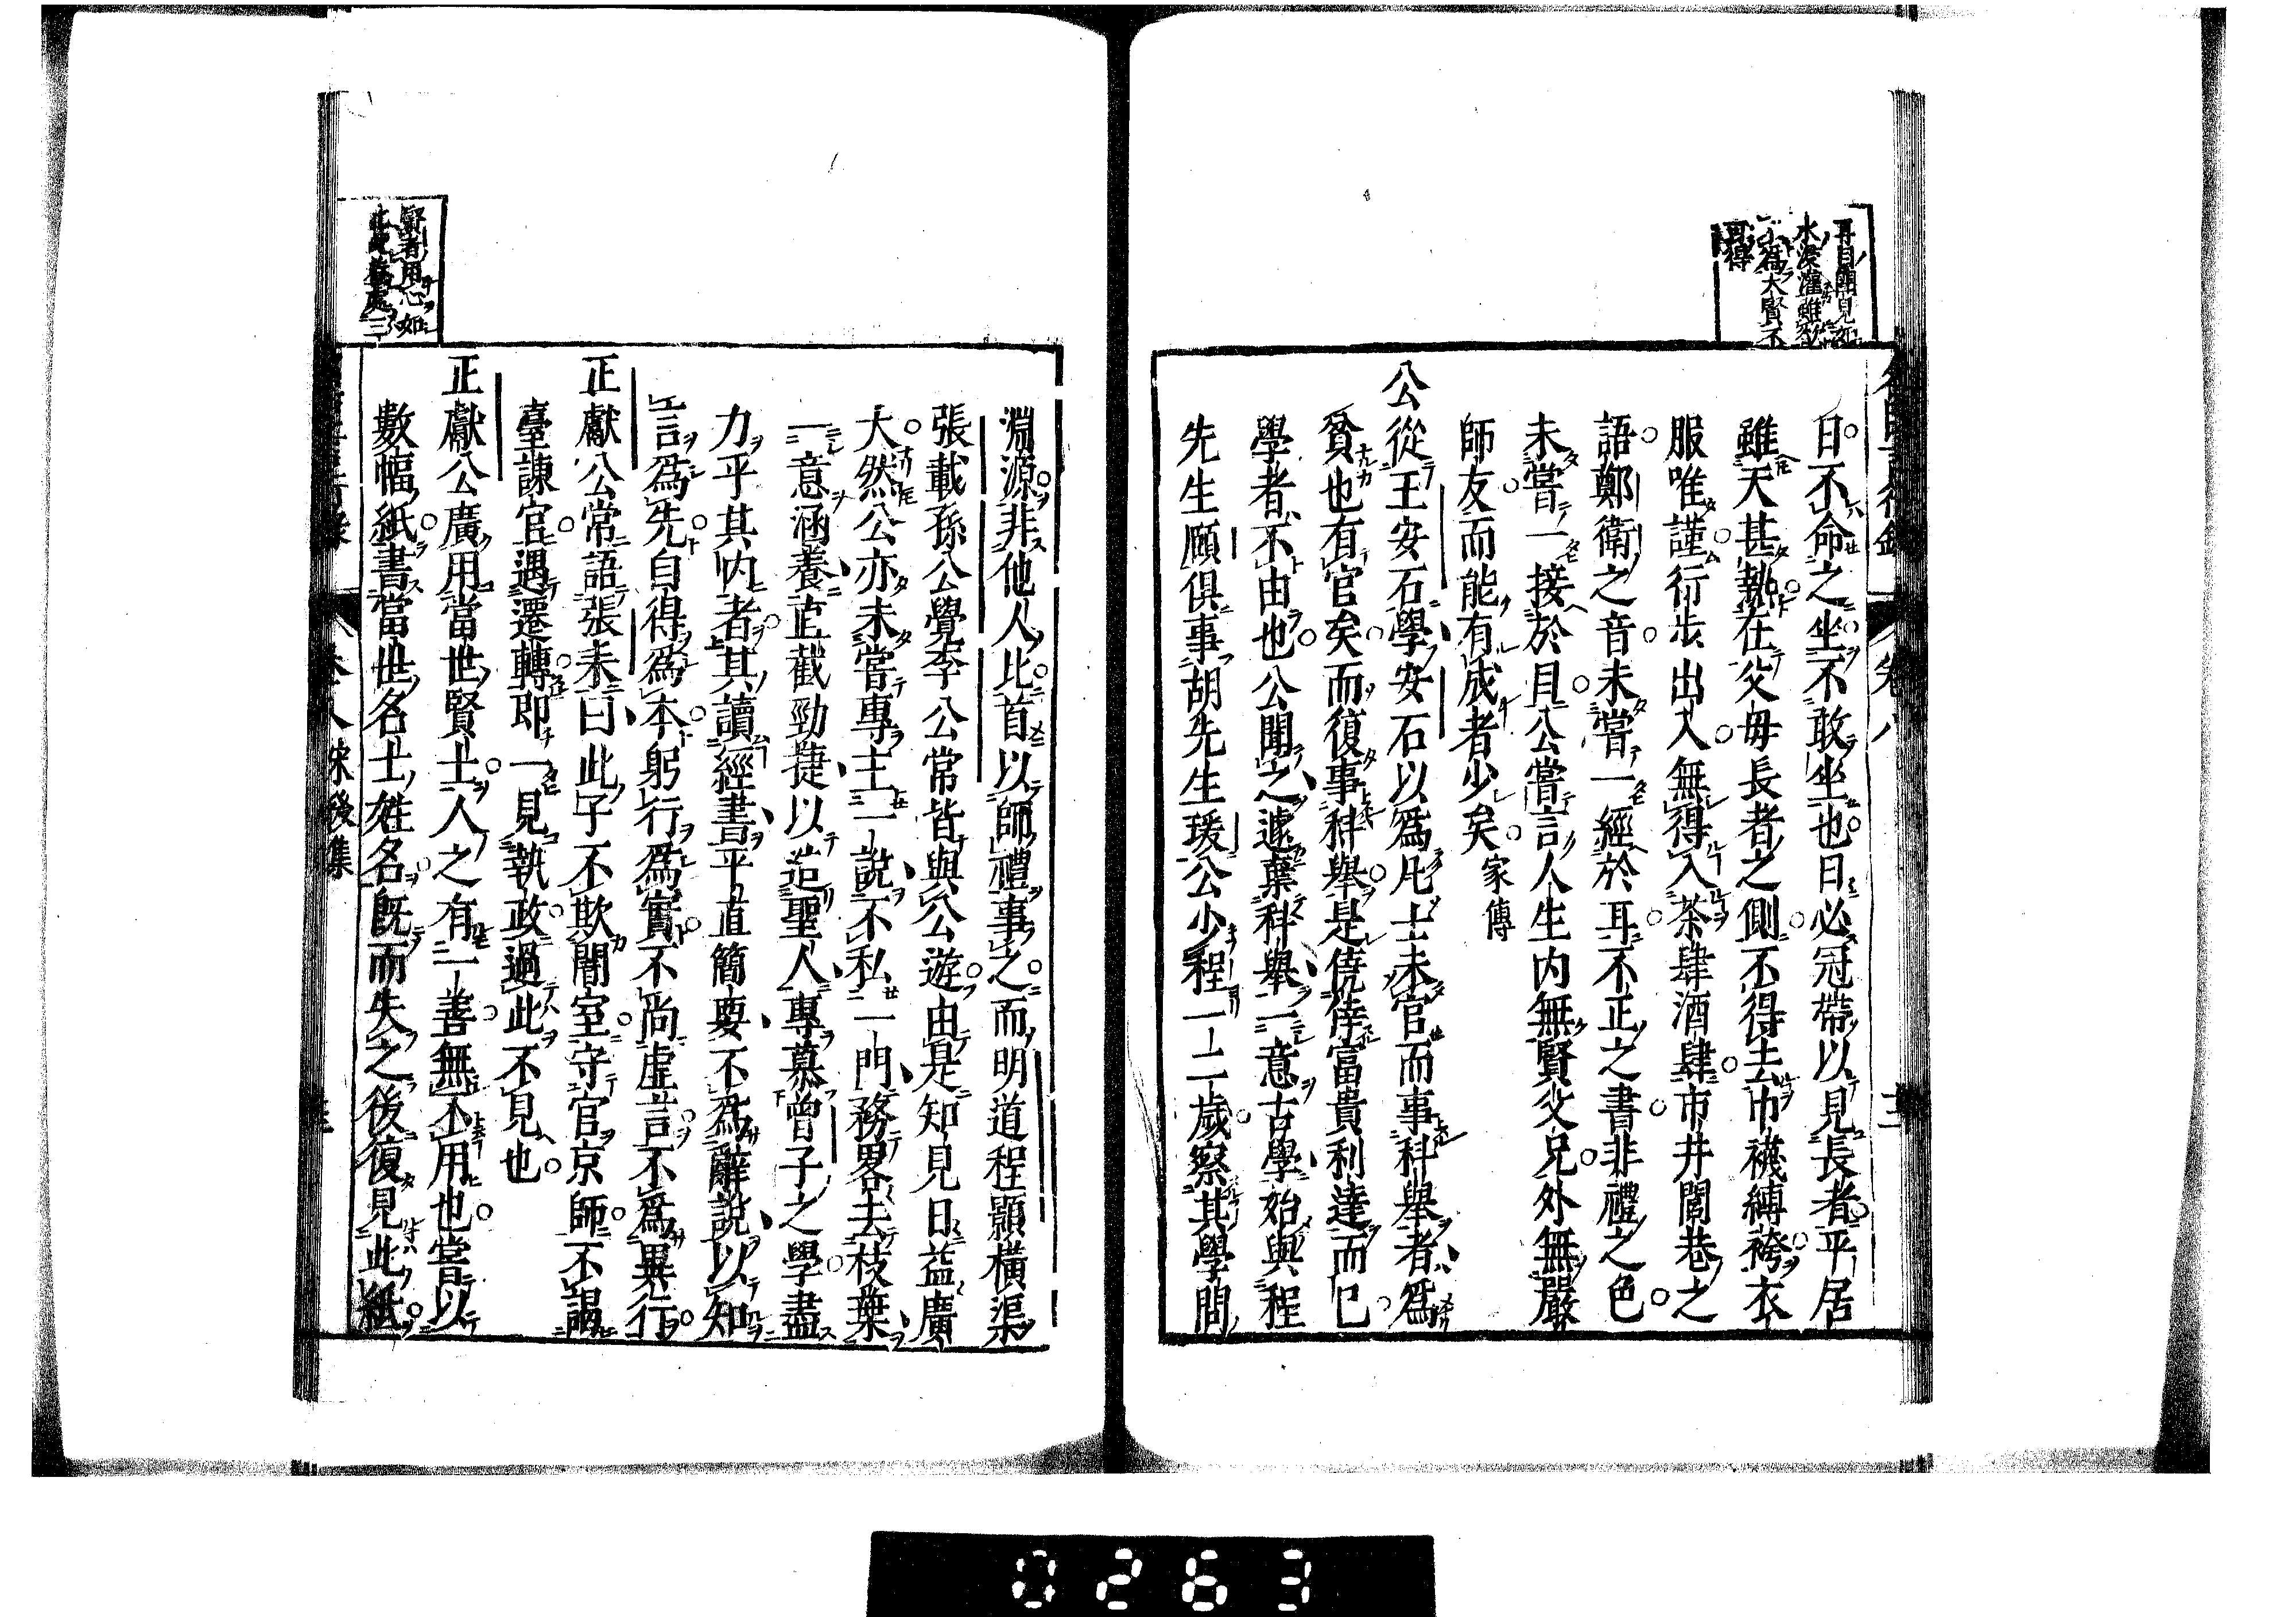 再自關見
水浸灌雖
不爲大賢不
可得
日不命之坐不敢坐也日必冠帶以見長者平居
雖天甚熱在父母長者之側不得去巾襪縛袴衣
服唯謹行步出入無得入茶肆酒肆市井閭巷之
語鄭衛之音未嘗一經於耳不正之書非禮之色
未嘗一接於目公嘗言人生内無賢父兄外無嚴
師友而能有成者少矣家傳
公從王安石學安石以爲凡士未官而事科舉者爲
貧也有官矣而復事科舉是僥倖富貴利達而已
學者不由也公聞之遽棄科舉一意古學始與程
先生頤俱事胡先生瑗公少程一二歲察其學問
淵源非他人此首以師禮事之而明道程顥横渠
張載孫公覺李公常皆與公遊由是知見日益廣
大然公亦未嘗專主一說不私一門務畧去枝葉
一意涵養直截勁捷以造聖人專慕曾子之學盡
力乎其内者其讀經書平直簡要不爲辭說以知
言爲先自得爲本躬行爲實不尚虛言不爲異行
正獻公常語張耒曰此子不欺闇室守官京師不謁
臺諫官遇遷轉即一見執政過此不見也
正獻公廣用當世賢士人之有一善無不用也嘗以
數幅紙書當世名士姓名既而失之後復見此紙
賢者用心如
卷八宋後集